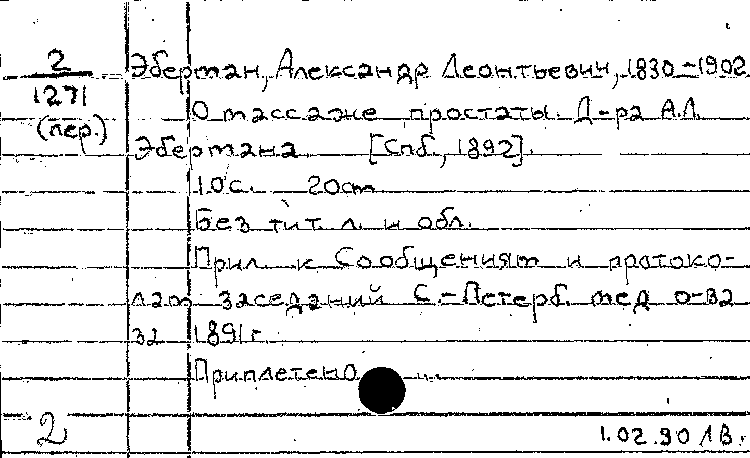 2
1271
(пер.)
Эберман, Александр Леонтьевич, 1830-1902
О массаже простаты. Д-ра А.Л.
Эбермана [Спб., 1892].
10с. 20см
Без тит. л. и обл.
Прил. к Сообщениям и протоко-
лам заседаний С.-Петерб. мед о-ва
за 1891г.
Приплетено ...
2
1.02.90 ЛВ.